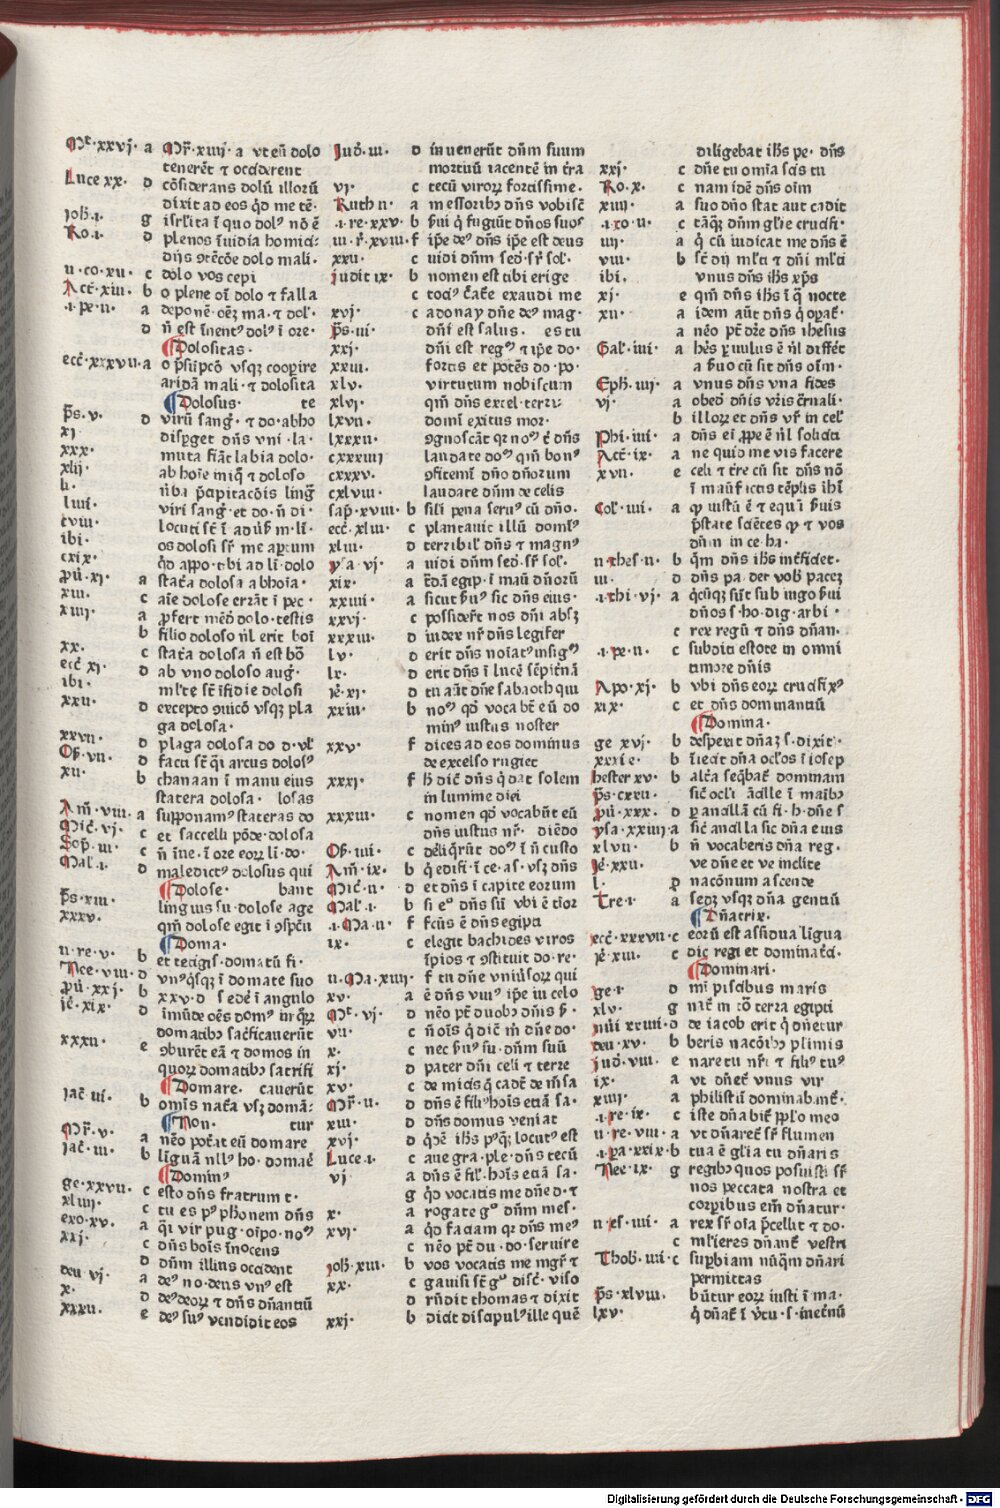 Mt·xxvj· a Mr̄·xiiij·a vt eū dolo
tenerēt ⁊ occiderent
Luce xx· d cōsiderans dolū illorū
dixit ad eos qd me tē·
joh̄·i· g isrl'ita ī quo dolꝰ nō ē
Ro·i· d plenos īuidia homici:
dijs ↄtētiōe dolo mali·
ii·co·xii· c dolo vos cepi
Act̄·xiii· b o plene oī dolo ⁊ falla
·i·pe·ii· a deponē·oēꝫ ma·⁊ dol'·
d nō est īuentꝰ dolꝰ ī ore·
Dolositas·
ecc̄·xxxvii·a o p̄sūpcō vsqꝫ coopire
aridā mali·⁊ dolosita
Dolosus· te
p̄s·v· d virū sang·⁊ do·abho
xj disp̄get dn̄s vni·la·
xxx· muta fiāt labia dolo·
xlij· ab hoīe iniq̄ ⁊ doloso
li·
liiii· viri sang·et do·n̄ di·
cviii· locuti sē ī adūb m·li·
ibi· os dolosi sr̄ me aptum
cxix· qd appo·tibi ad li·dolo
p̄ū·xj· a statēa dolosa abhoīa·
xii· c aīe dolose errāt ī pec·
xiiij· a p̄fert mēd dolo·testis
b filio doloso nl̄ erit boī
xx· c statēa dolosa n̄ est bō
ecc̄ xj· d ab vno doloso aug·
ibi· ml'te sē īsidie dolosi
xxii· d excepto ↄuicō vsqꝫ pla
ga dolosa·
xxvii· d plaga dolosa do d·vl'
Oſ̄·vii· d facti sē qi arcus dolosꝰ
xii· b chanaan ī manu eius
statera dolosa· losas
Am̄·viii· a supponamꝰ stateras do
Mic̄·vj· c et saccelli pōde·dolosa
Sop̄·iii· c n̄ īne·ī ore eorꝫ li·do·
Mal'·i· d maledictꝰ dolosus qui
Dolose· bant
p̄s·xiii· linguis su·dolose age
xxxv· qm̄ dolose egit ī ↄspcū
Doma·
ii·re·v· b et tetigis·domatū fi·
Nee·viii·d vnꝰqsqꝫ ī domate suo
p̄ū·xxj· b xxv·d sedē ī angulo
je·xix· d īmūde oēs domꝰ in qrꝫ
domatibꝫ sac̄ficauerūt
xxxii· e ↄburēt eā ⁊ domos in
quorꝫ domatibꝫ sacrifi
Domare· cauerūt
jac̄·iii· b omīs nat̄a vsꝫ domā:
Non· tur
Mr̄·v· a nēo pot̄at eū domare
jac̄·iii· b līguā nllꝰ ho·domaē
Dominꝰ
ge·xxvii· c esto dn̄s fratrum t·
xliij· c tu es pꝰ ph̄onem dn̄s
exo·xv· a qi vir pug·oīpo·noꝰ
xxj· c dn̄s bois īnocens
d dn̄m illius occident
deu vj· a deꝰ no·deus vnꝰ est
x· d deꝰdeorꝫ ⁊ dn̄s dn̄antiū
xxxii· e deꝰ suꝰ vendidit eos
Jud̄·iii· d inuenerūt dn̄m suum
mortuū iacentē in t̄ra
vj· c tecū virorꝫ fortissime·
Ruth ii· a messoribꝫ dn̄s vobisc̄
·i·re·xxv· b s̄ui q̄ fugiūt dn̄os suos
iii·r̄·xviii·f ip̄e deꝰ dn̄s ip̄e est deus
xxii· c uidi dn̄m sed·sr̄ sol'·
judit ix· b nomen est tibi erige
c totiꝰ c̄at̄e exaudi me
xvj· c adonay dn̄e deꝰ mag·
p̄s·iii· dn̄i est salus· es tu
xxj· dn̄i est regꝰ ⁊ ip̄e do·
xxiii· fortis et potēs do·po·
xlv· virtutum nobiscum
xlvj· qm̄ dn̄s excel·terri:
lxvii· domī exitus mor·
lxxxii· ↄgnoscāt qꝫ noꝰ t̄ dn̄s
cxxxiiij laudate doꝰ qm̄ bonꝰ
cxxxv· ↄfitemī dn̄o dn̄orum
cxlviii· laudate dn̄m de celis
sap̄·xviii· b sili pena seruꝰ cū dn̄o·
ecc̄·xliii· c plantauit illū domīꝰ
xliii· d terribil' dn̄s ⁊ magnꝰ
ysa·vj· a uidi dn̄m sed·sr̄ sol'·
xix· a t̄dā egip·ī manū dn̄orū
xxiiii· a sicut s̄uꝰ sic dn̄s eius·
xxvj· c possider̄t nos dn̄i absꝫ
xxxiii· d iudex nr̄ dn̄s legifer
lv· d erit dn̄s noīatꝰīsigꝰ
lx· d erit dn̄s ī lucē sēpit̄nā
je·xj· d tu aūt dn̄e sabaoth qui
xxiii· b noꝰ qd vocabt̄ eū do
minꝰ iustus noster
xxv· f dices ad eos dominus
de excelso rugiet
xxxj· f h̄ dic̄t dn̄s q̄ dat solem
in lumine diei
xxxiii· c nomen qd vocabūt eū
dn̄s iustus nr̄· diēdo
Oſ̄·iiii· c deliq̄rūt doꝰ ī n̄ custo
Am̄·ix· b q̄ edifi·ī ce·as·vsꝫ dn̄s
Mic̄·ii· d et dn̄s ī capite eorum
Mal'·i· b si eꝰ dn̄s sū vbi ē tīor
·i·Ma·ii· f fcūs ē dn̄s egipti
ix· c elegit bachides viros
īpios ⁊ ↄstituit do·re·
ii·Ma·xiiij· f tu dn̄e vniūsorꝫ qui
xv· a ē dn̄s viuꝰ ip̄e in celo
Mt̄·vj· d nēo pt̄ duobꝫ dn̄is s̄·
vii· c n̄ oīs q̄ dic̄ m̄ dn̄e do·
x· c nec s̄uꝰ su·dn̄m suū
xj· d pater dn̄i celi ⁊ terre
xv· c de micis q̄ cadt̄ de m̄sa
Mr̄·ii· d dn̄s ē filꝰhoīs etiā sa·
xiii· d dn̄s domus veniat
xvj· d qdē ih̄s pꝰqꝫ locutꝰ est
Luce·i· c aue gra·ple·dn̄s tecū
vj a dn̄s ē fil'·hoīs etiā sa·
g qd vocatis me dn̄e d·⁊
x· a rogate gꝰ dn̄m mes·
xvj· a qd faciam qꝫ dn̄s meꝰ
c nēo pt̄ du·do·seruire
joh̄·xiii· b vos vocatis me mgr̄ ⁊
xx· c gauisi sē gꝰ disc̄·viso
d rn̄dit thomas ⁊ dixit
xxj· b dicit discipulꝰille quē
diligebat ih̄s pe· dn̄s
xxj· c dn̄e tu omīa scis tu
Ro·x· c nam idē dn̄s oīm
xiiij· a suo dn̄o stat aut cadit
·i·co·ii· c tāqꝫ dn̄m gl'ie crucifi·
iiij· a q̄ cū iudicat me dn̄s ē
viii· b sē dij ml'ti ⁊ dn̄i ml'ti
ibi· vnus dn̄s ih̄s xp̄s
xj· e qm̄ dn̄s ih̄s ī q̄ nocte
xii· a idem aūt dn̄s q̄ opat̄·
a nēo pt̄ dr̄e dn̄s ihesus
Gal'·iiii· a hēs puulus ē nl̄ differt
a s̄uo cū sit dn̄s oīm·
Eph̄·iiij· a vnus dn̄s vna fides
vj· a obed dn̄is vr̄is c̄rnali·
b illorꝫ et dn̄s vr̄ in cel'
Phi·iiii· a dn̄s eī ꝓpe ē nl̄ soliciti
Act̄·ix· a ne quid me vis facere
xvii· e celi ⁊ t̄re cū sit dn̄s nō
ī manufactis tēplis ihī
Col'·iiii· a qd iustū ē ⁊ equū s̄uis
p̄state sciētes qd ⁊ vos
dn̄m in ce·ha·
ii·thes·ii· b qm̄ dn̄s ih̄s int̄ficiet·
iii· d dn̄s pa·det vob̄ pacez
·i·thi·vj· a q̄cūqꝫ sūt sub iugo s̄ui
dn̄os s·ho·dig·arbi·
c rex regū ⁊ dn̄s dn̄an·
·i·pe·ii· c subditi estote in omni
timore dn̄is
Apo·xj· b vbi dn̄s eorꝫ crucifixꝰ
xix· c et dn̄s dominantiū
Domina·
ge xvj· b despexit dn̄aꝫ s·dixit·
xxxix· b īiecit dn̄a oclōs ī iosep
hester xv· b alt̄a seq̄bat̄ dominam
p̄s·cxxii· sic̄ ocl'i ācille ī maībꝫ
p̄ū·xxx· d p ancillā cū fi·h·dn̄e s
ysa·xxiiij·a sic̄ ancilla sic dn̄a eius
xlvii· b n̄ vocaberis dn̄a reg·
je·xxii· ve dn̄e et ve inclite
l· p nacōnum ascende
Tre·i· a sedꝫ vsqꝫ dn̄a gentiū
Dn̄atrix·
ecc̄·xxxvii·c eorū est assidua līgua
je·xiii· c dic regi et dominat̄ci·
Dominari·
ge·i· d mī piscibus maris
xlv· g nat̄ in tō terra egipti
nūi xxiiii·d de iacob erit q̄ dn̄etur
deu·xv· b beris nacōibꝫ plimis
jud̄·viii· e nare tu nr̄i ⁊ filiꝰ tuꝰ
ix· a vt dn̄et̄ vnus vir
xiiij· a philistiī dominab·mt̄·
·i·re·ix· c iste dn̄abit̄ pp̄lo meo
ii·re·viii· a vt dn̄aret̄ sr̄ flumen
·i·pa·xxix·b tua ē gl'ia tu dn̄aris
Nee·ix· g regibꝫ quos posuisti sr̄
nos peccata nostra et
corpibus em̄ dn̄atur·
ii·es·iiii· a rex sr̄ oīa p̄cellit ⁊ do·
c ml'ieres dn̄ant̄ vestri
Thob̄·iiii·c supbiam nūqm̄ dn̄ari
permittas
p̄s·xlviii· būtur eorꝫ iusti ī ma·
lxv· q̄ dn̄at̄ ī v̄tu·s·inet̄nū
Digitalisierung gefördert durch die Deutsche Forschungsgemeinschaft · DFG